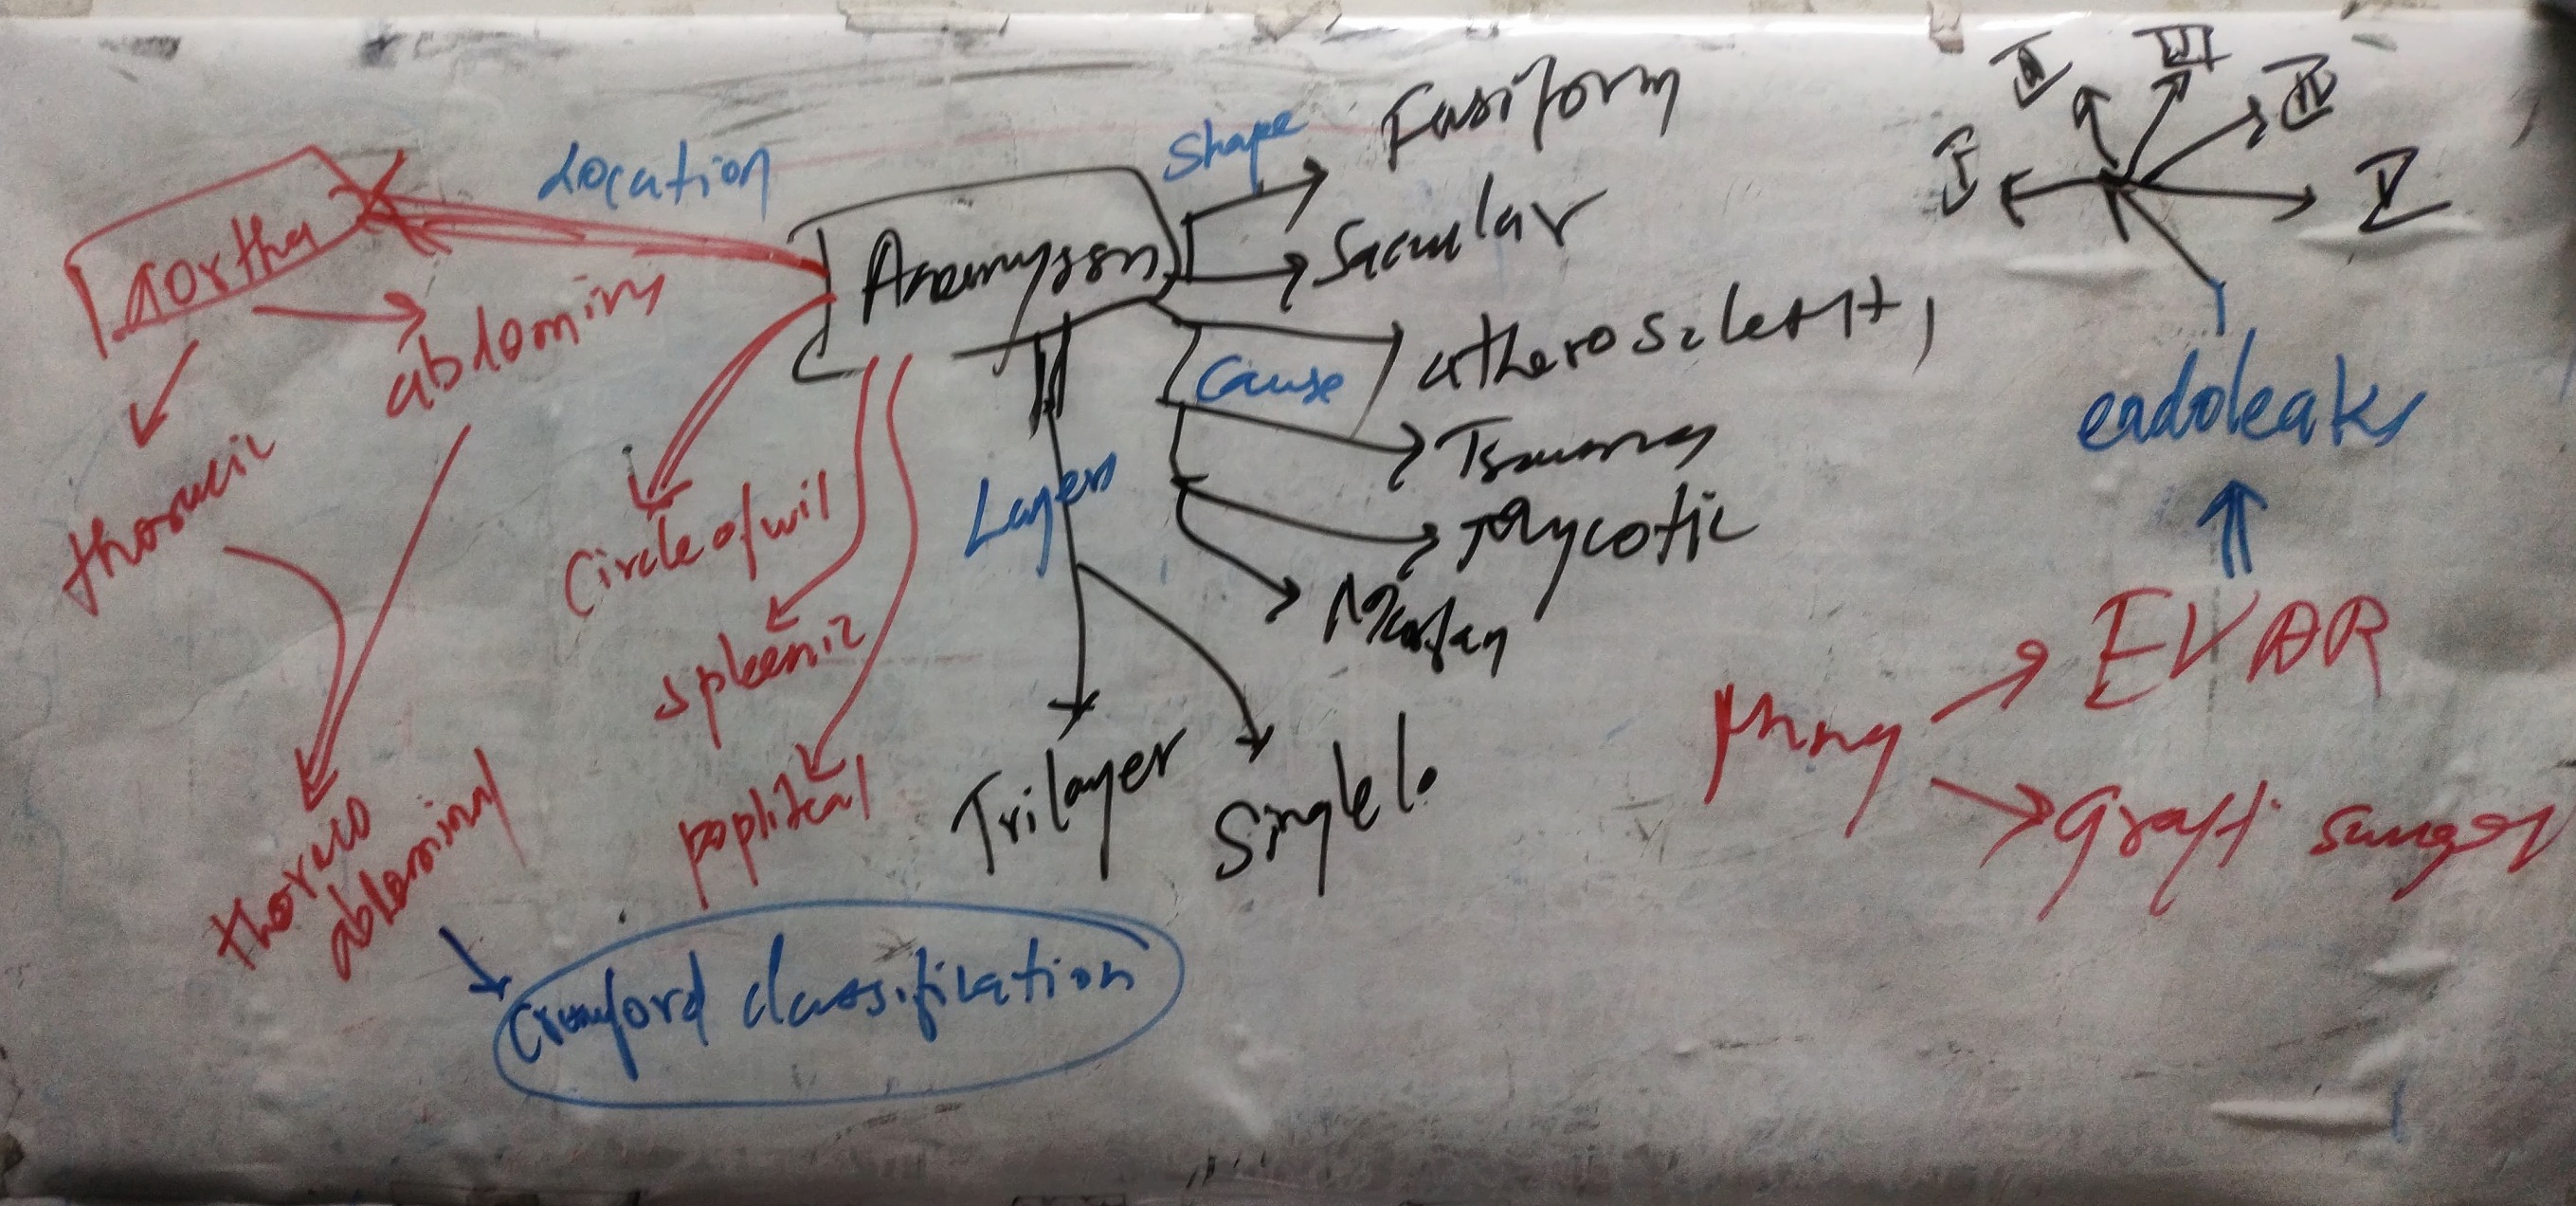 Location
aortha
abdominy
thoracic
thoraco
abdominal
Crawford classification
Aneurysm
Circle of wil
spleenic
popliteal
Layers
Trilayer
Single l.
Shape
Fusiform
Saccular
Cause
Trauma
Mycotic
Marfan
I
II
III
IV
V
endoleaks
EVAR
Graft surgery